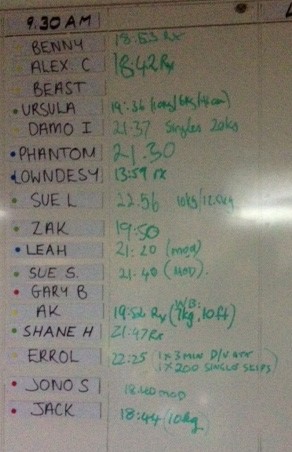 9.30 AM
BENNY 18:53 Rx
ALEX C 18:42 Rx
BEAST
URSULA 19:36
DAMO I 21:37 Singles 20kg
PHANTOM 21.30
LOWNDESY 13:59 rx
SUE L 22.56 10kg/12.0kg
ZAK 19:50
LEAH 21:20 (mod)
SUE S. 21:40 (MOD).
GARY B
AK 19:52 Rx (W/B: 9kg, 10ft)
SHANE H 21:47 Rx
ERROL 22:25 1x3 MIN D/U ATT
1x200 SINGLE SKIPS)
JONO S 18:40 MOD
JACK 18:44 (10kg)